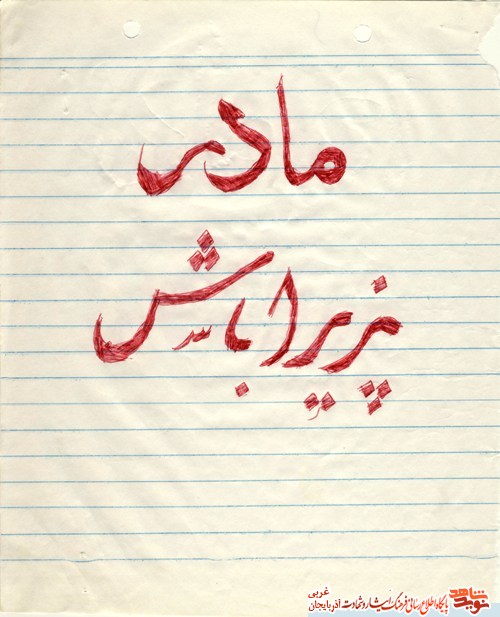 مادر
پزیرا باش
نوید شاهد
پایگاه اطلاع رسانی فرهنگ ایثار و شهادت آذربایجان غربی